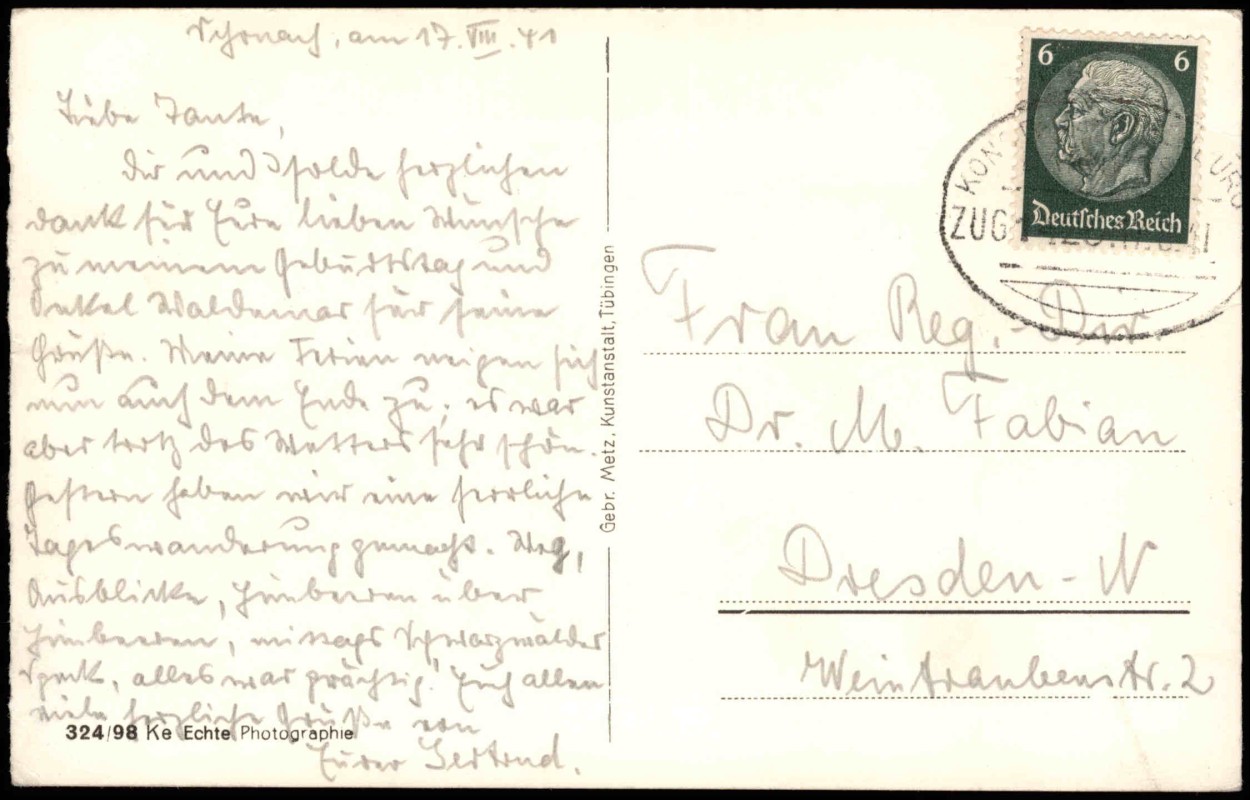 Schonach, am 17. VIII. 41
Liebe Tante,
Dir und Isolde herzlichen
Dank für Eure lieben Wünsche
zu meinem Geburtstag und
Onkel Waldemar für seine
Grüße. Meine Ferien neigen sich
nun auch dem Ende zu; es war
aber trotz des Wetters sehr schön.
Gestern haben wir eine herrliche
Tageswanderung gemacht. Weg,
Ausblicke, Himbeeren über
Himbeeren, mittags Schwarzwälder
Speck, alles war prächtig. Euch allen
viele herzliche Grüße von
Eurer Gertrud.
324/98 Ke Echte Photographie
Gebr. Metz, Kunstanstalt, Tübingen
6 6
Deutsches Reich
ZUG
Frau Reg.-Dir.
Dr. M. Fabian
Dresden-N
Weintraubenstr. 2